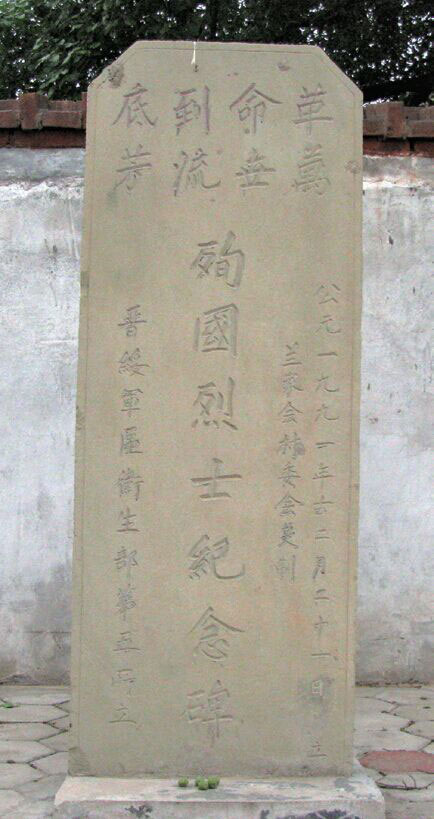 革命到底
萬世流芳
公元一九九一年二月二十一日 立
兰家会村委会复制
殉國烈士紀念碑
晋綏軍區衛生部第五所立